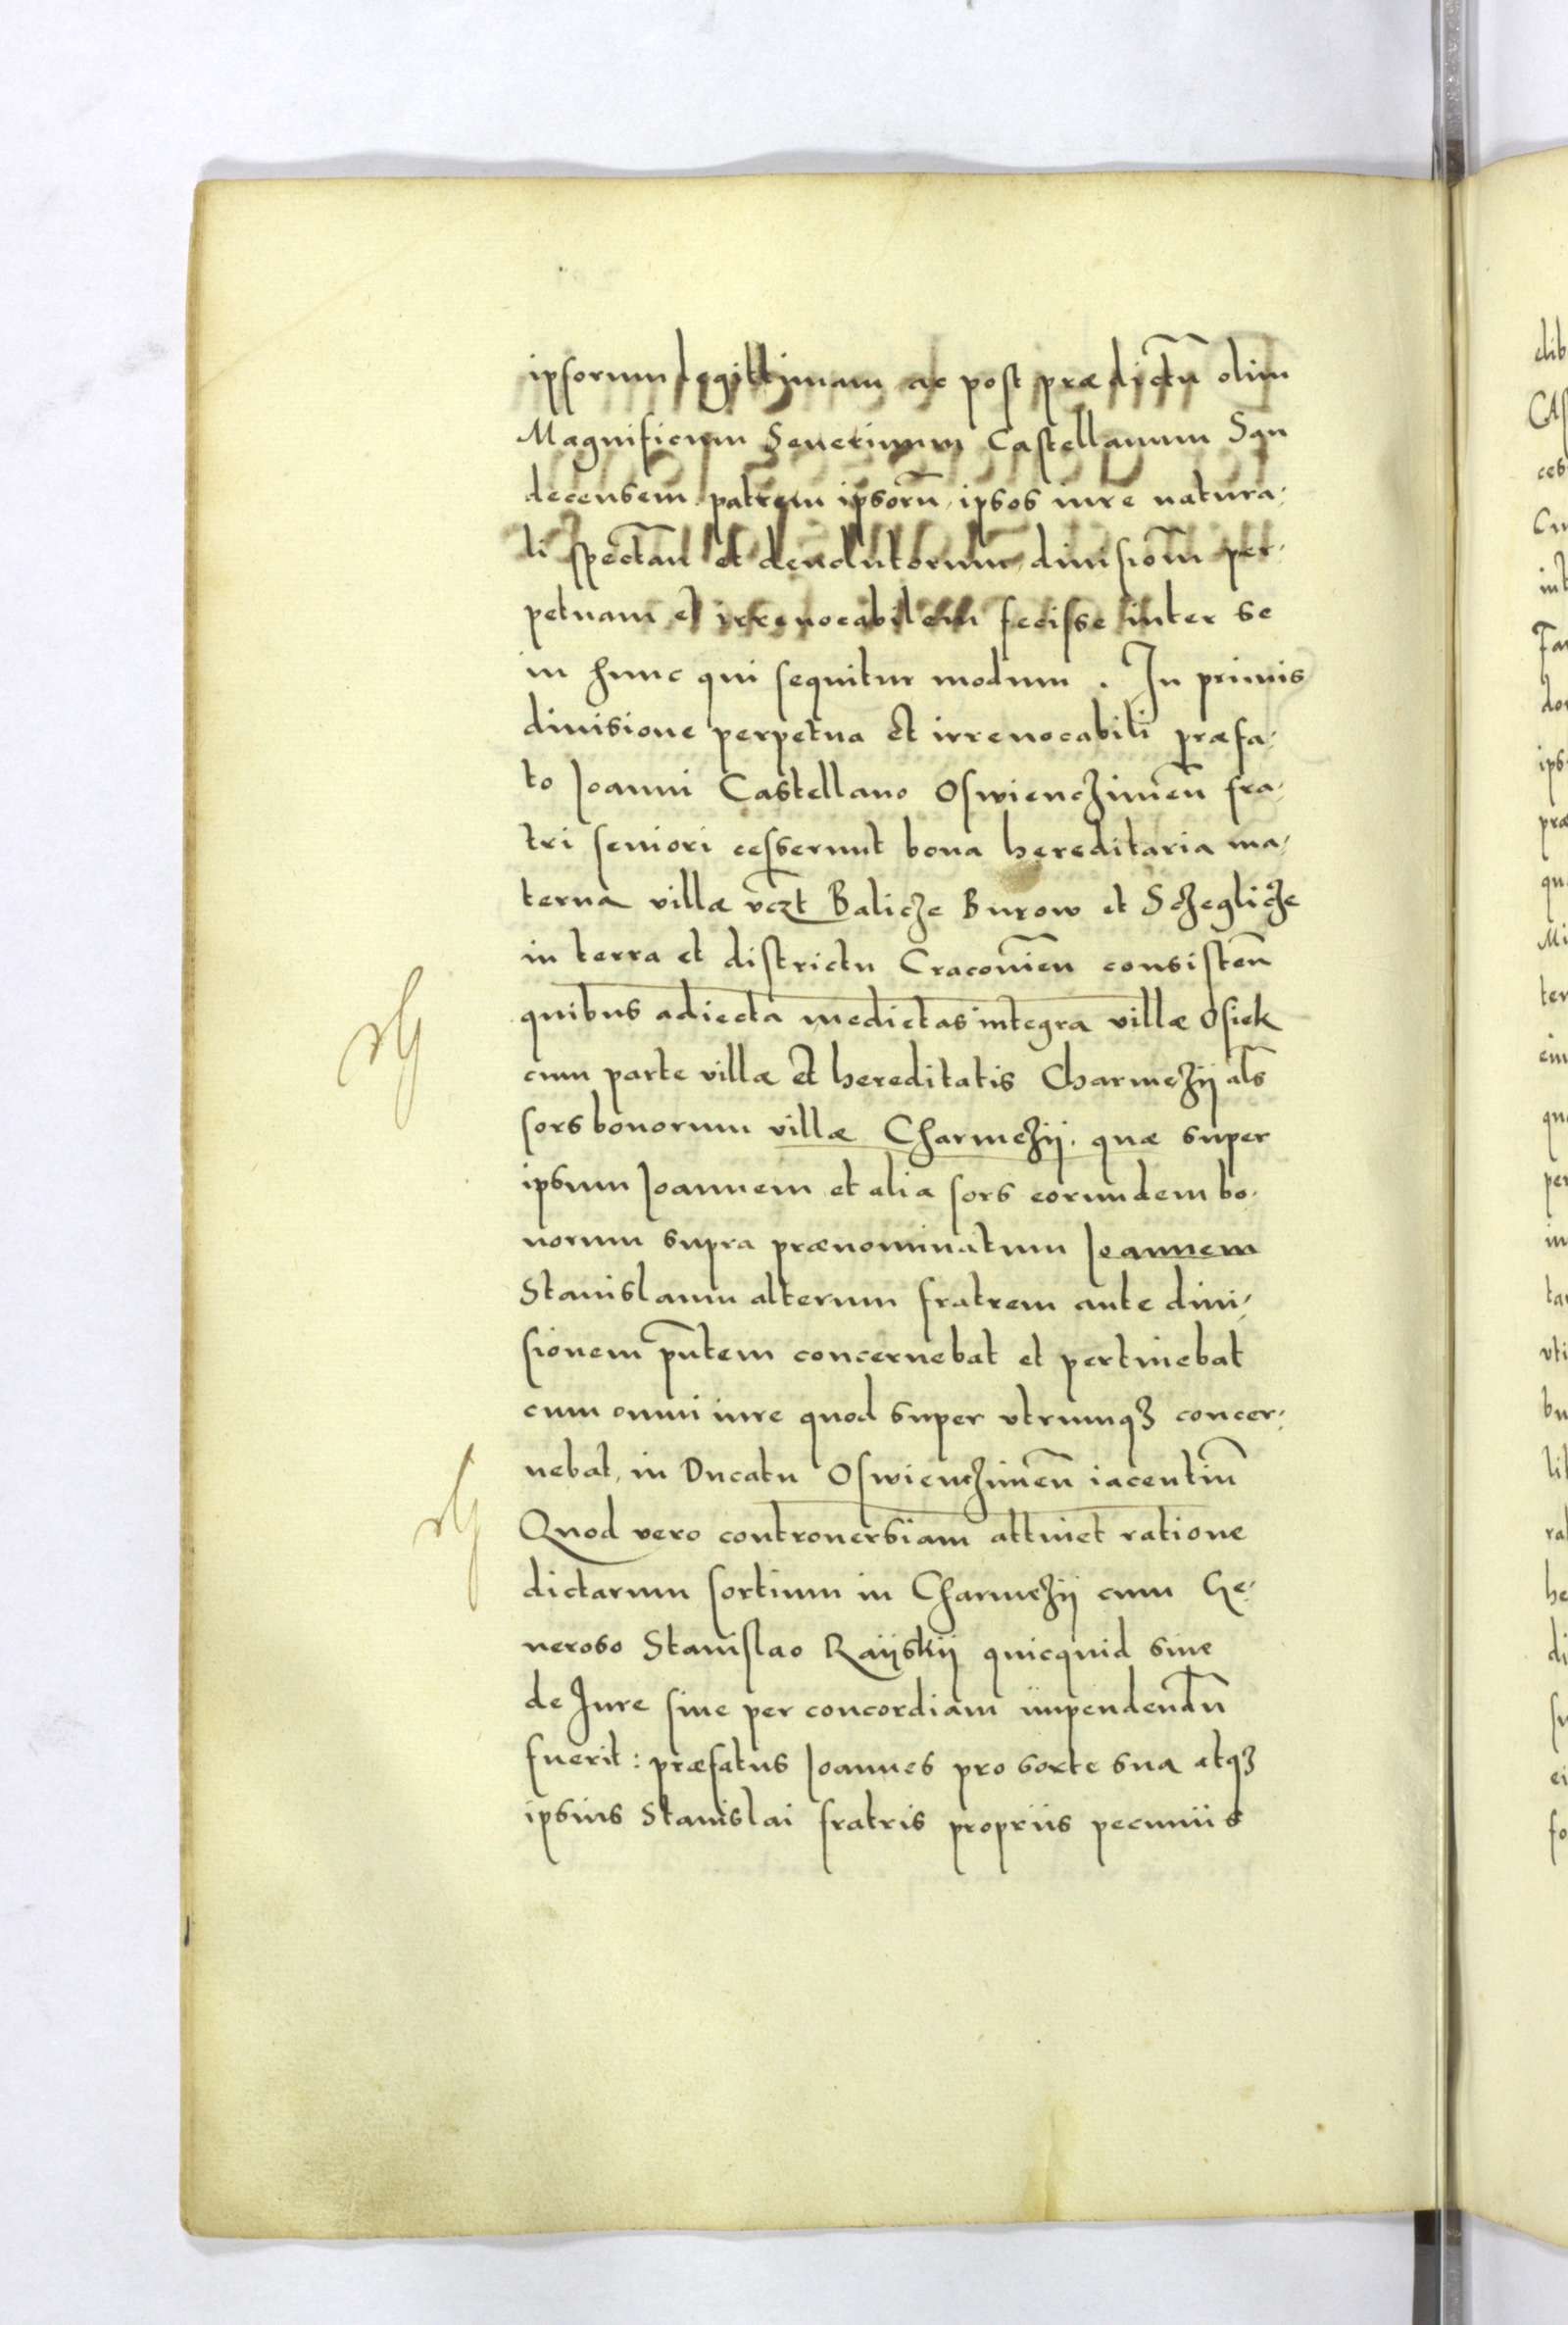 ipsorum legittimam ac post prædictũ olim
Magnificum Seuerinum Castellanum San
decensem patrem ipsorũ, ipsos iure natura,
li spectañ et deuolutorum, diuisioñm per,
petuam et irreuocabilem fecisse inter se
in hunc qui sequitur modum . In primis
diuisione perpetua et irreuocabili præfa,
to Joanni Castellano Oswienczimeñ fra,
tri seniori cesserunt bona hereditaria ma,
terna villæ vczt Balicze Burow et Sczeglicze
in terra et districtu Cracouieñ consisteñ
quibus adiecta medietas integra villæ Osiek
cum parte villæ et hereditatis Charmczij als̃
sors bonorum villæ Charmczij, quæ super
ipsum Joannem et alia sors eorumdem bo,
norum supra prænominatum Joannem
Stanislaum alterum fratrem ante diui,
sionem pñtem concernebat et pertinebat
cum omni iure quod super vtrumqꝫ concer,
nebat, in Ducatu Oswienczimeñ iacentiũ
Quod vero controuersiam attinet ratione
dictarum sortium in Charmczij cum Ge,
neroso Stanislao Raijskij quicquid siue
de Jure siue per concordiam impendendũ
fuerit : præfatus Joannes pro sorte sua atqꝫ
ipsius Stanislai fratris propriis pecuniis